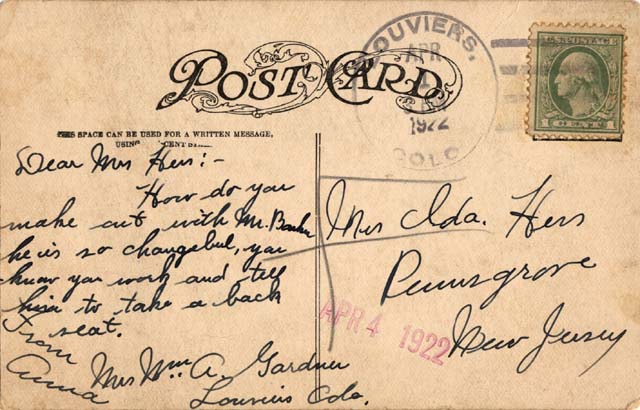 POST CARD
LOUVIERS,
APR
1922
COLO
U.S. POSTAGE
THIS SPACE CAN BE USED FOR A WRITTEN MESSAGE,
USING CENT
Dear Mrs Hers:-
How do you
make out with Mr. Banker
he is so changebul, you
know you work and tell
him to take a back
seat.
From
Anna
Mrs Wm. A. Gardner
Louviers Colo.
Mrs Ida. Hers
Pennsgrove
New Jersey
APR 4 1922